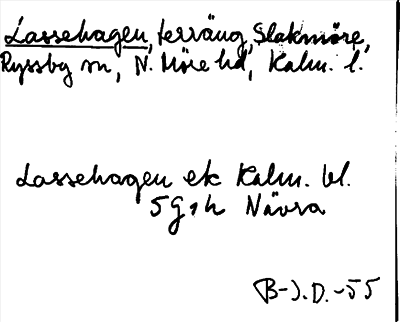 Lassehagen, terräng, Slakmöre,
Ryssby sn, N. Möre hd, Kalm. l.
Lassehagen ek Kalm. bl.
5G1h Nävra
B-J.D.-55